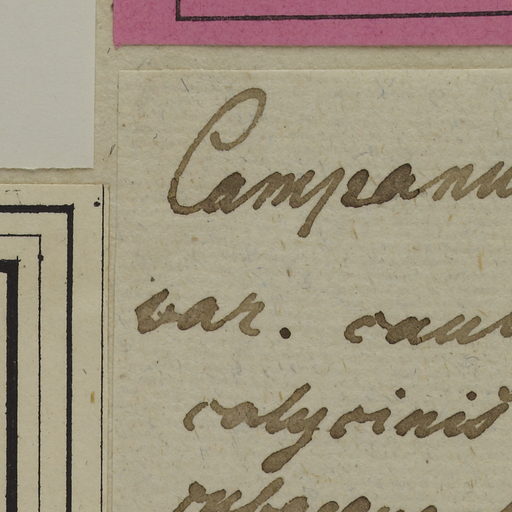 Campanu
var. caul
calycinis